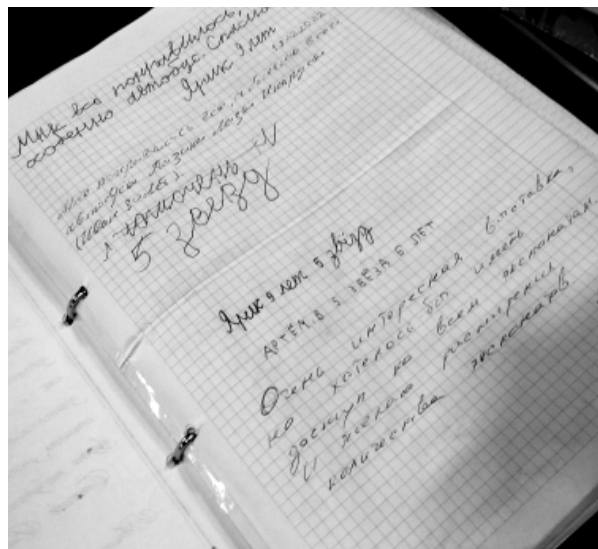 Мне все понравилось,
особенно автобус. Спасибо
Ярик 9 лет
Мне понравилось все, особенно
автобусы
5 звезд
Ярик 9 лет 5 звёзд
АРТЁМ В 5 ЗВЁЗД 6 ЛЕТ
Очень интересная выставка,
но хотелось бы иметь
доступ ко всем экспонатам
И желаю расширения
количества экспонатов